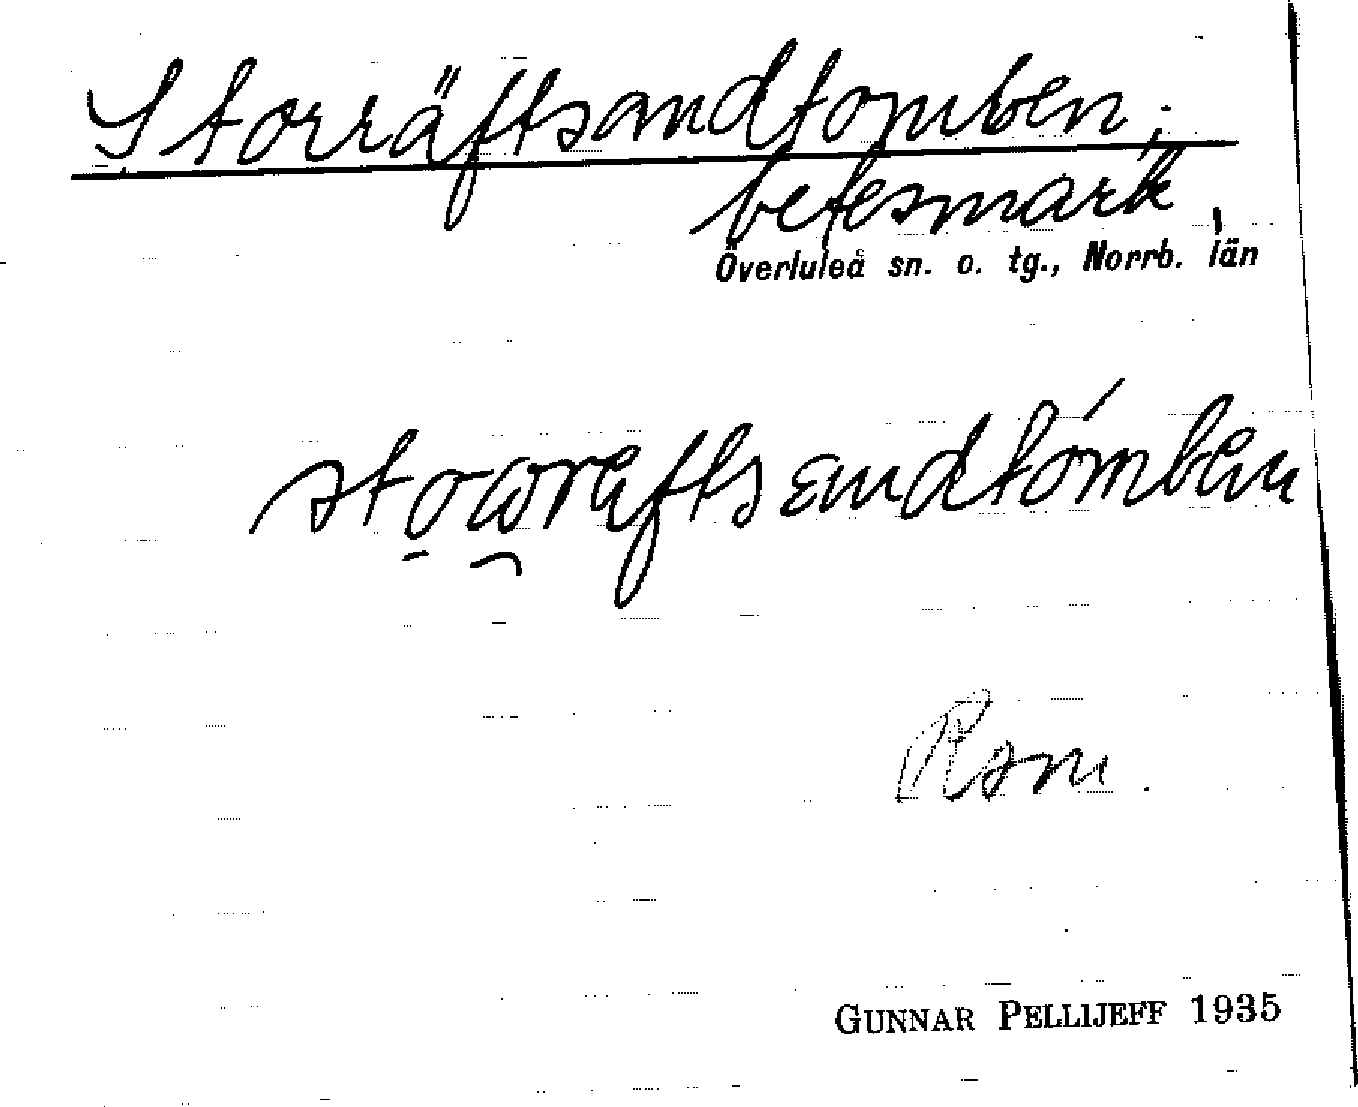 Storräftsandtomben;
betesmark,
Överluleå sn. o. tg., Norrb. län
Rsm.
GUNNAR PELLIJEFF 1935